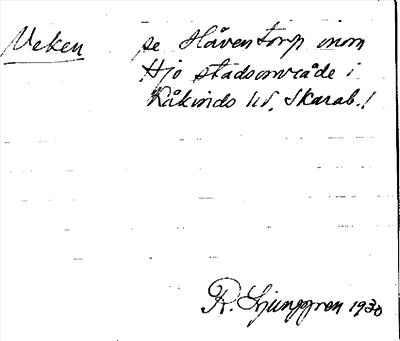 Veken se Håventorp inom
Hjo stadsområde i
Kåkinds hd, Skarab.!
R. Ljunggren 1930